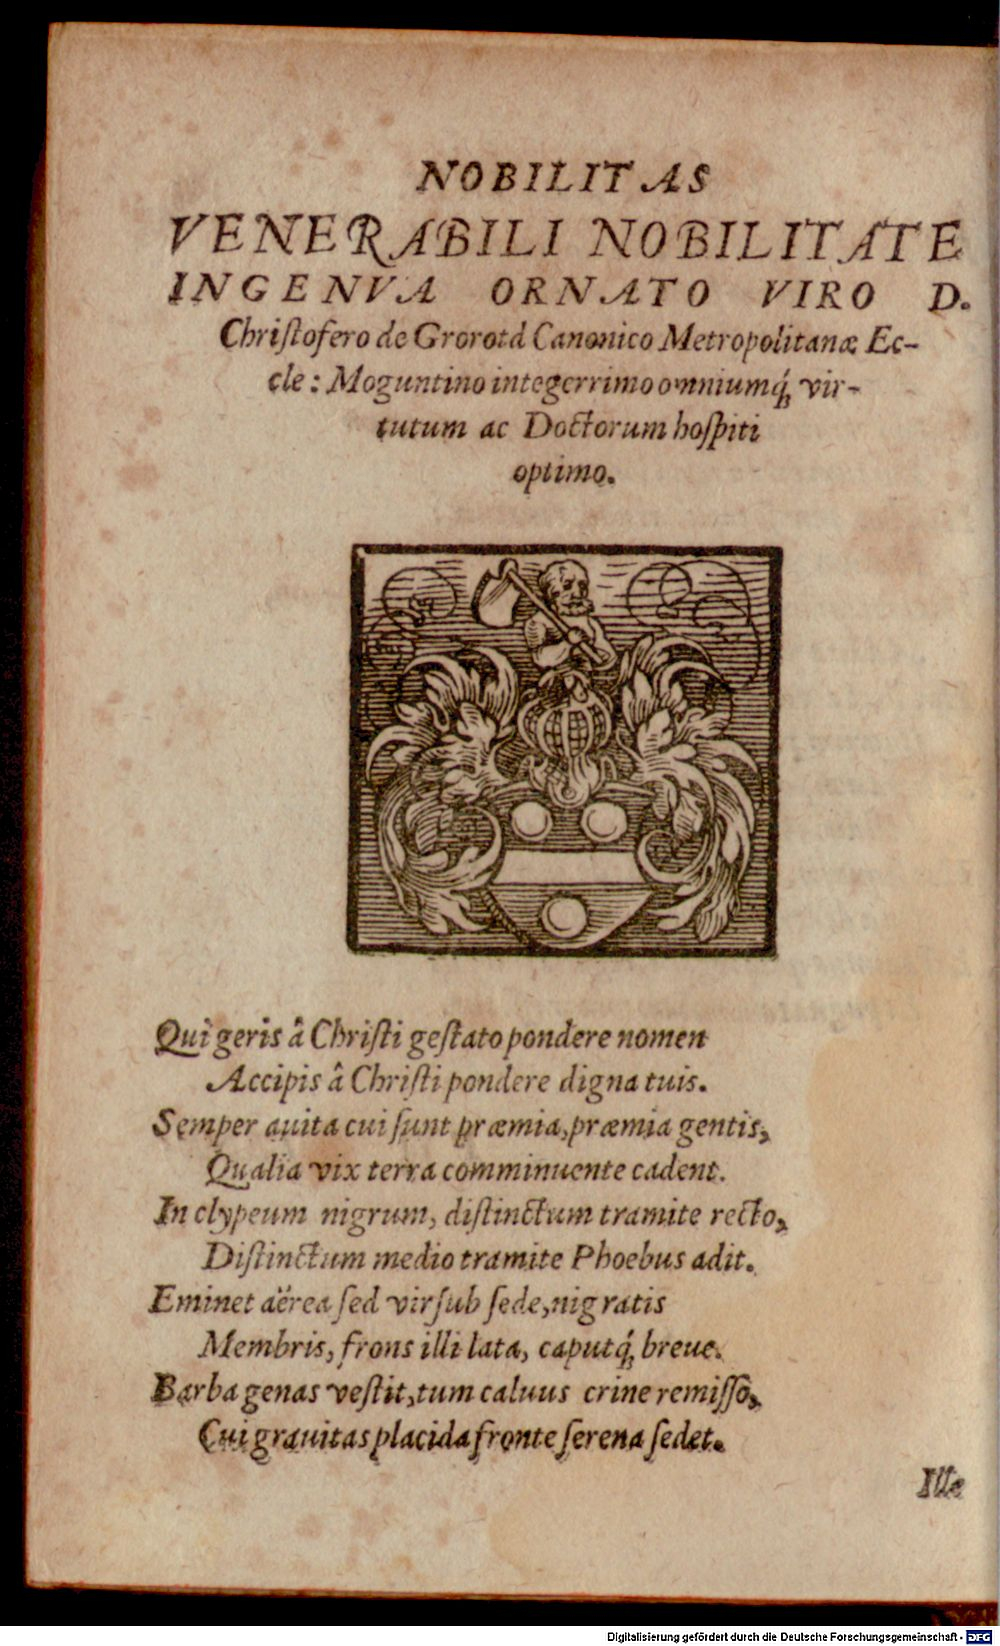 NOBILITAS
VENERABILI NOBILITATE
INGENVA ORNATO VIRO D.
Chriſtofero de Grorotd Canonico Metropolitanæ Ec-
cle: Moguntino integerrimo omniumq́; vir-
tutum ac Doctorum hoſpiti
optimo.
Qui geris â Chriſti geſtato pondere nomen
Accipis â Chriſti pondere digna tuis.
Semper auita cui ſunt præmia, præmia gentis,
Qualia vix terra comminuente cadent.
In clypeum nigrum, diſtinctum tramite recto,
Diſtinctum medio tramite Phoebus adit.
Eminet aërea ſed vir ſub ſede, nigratis
Membris, frons illi lata, caputq́; breue.
Barba genas veſtit, tum caluus crine remiſſo,
Cui grauitas placida fronte ſerena ſedet.
Ille
Digitalisierung gefördert durch die Deutsche Forschungsgemeinschaft - DFG